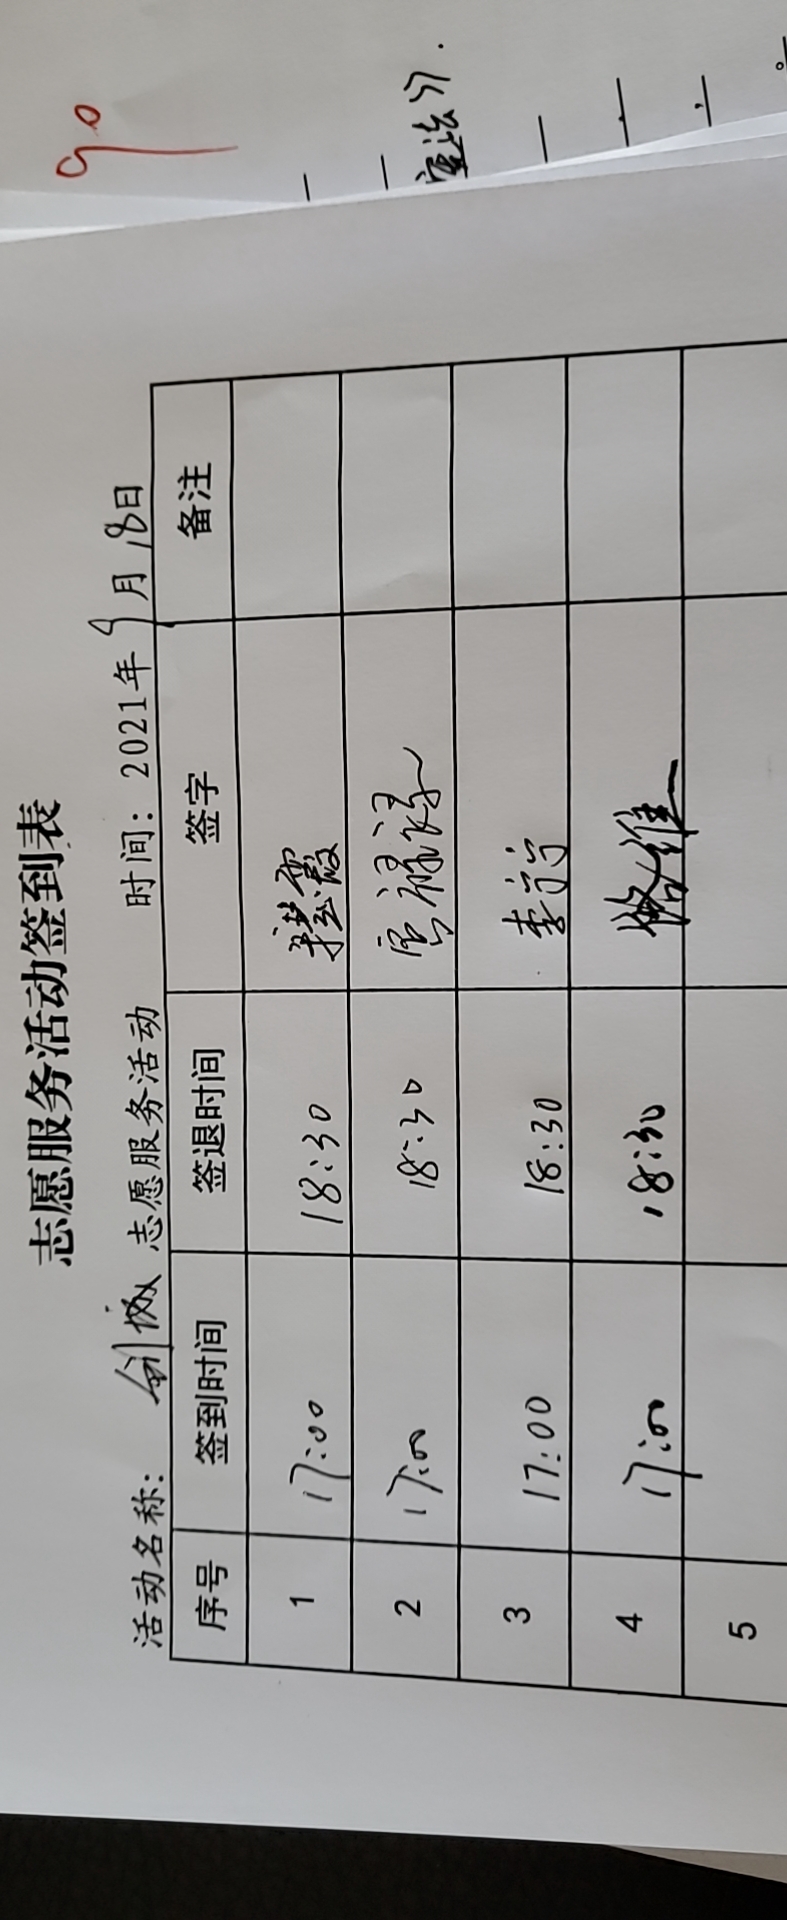 90
志愿服务活动签到表
活动名称： 剑协 志愿服务活动 时间：2021年9月18日
序号 签到时间 签退时间 签字 备注
1 17:00 18:30
2 17:00 18:30
3 17:00 18:30 李宁宁
4 17:00 18:30
5